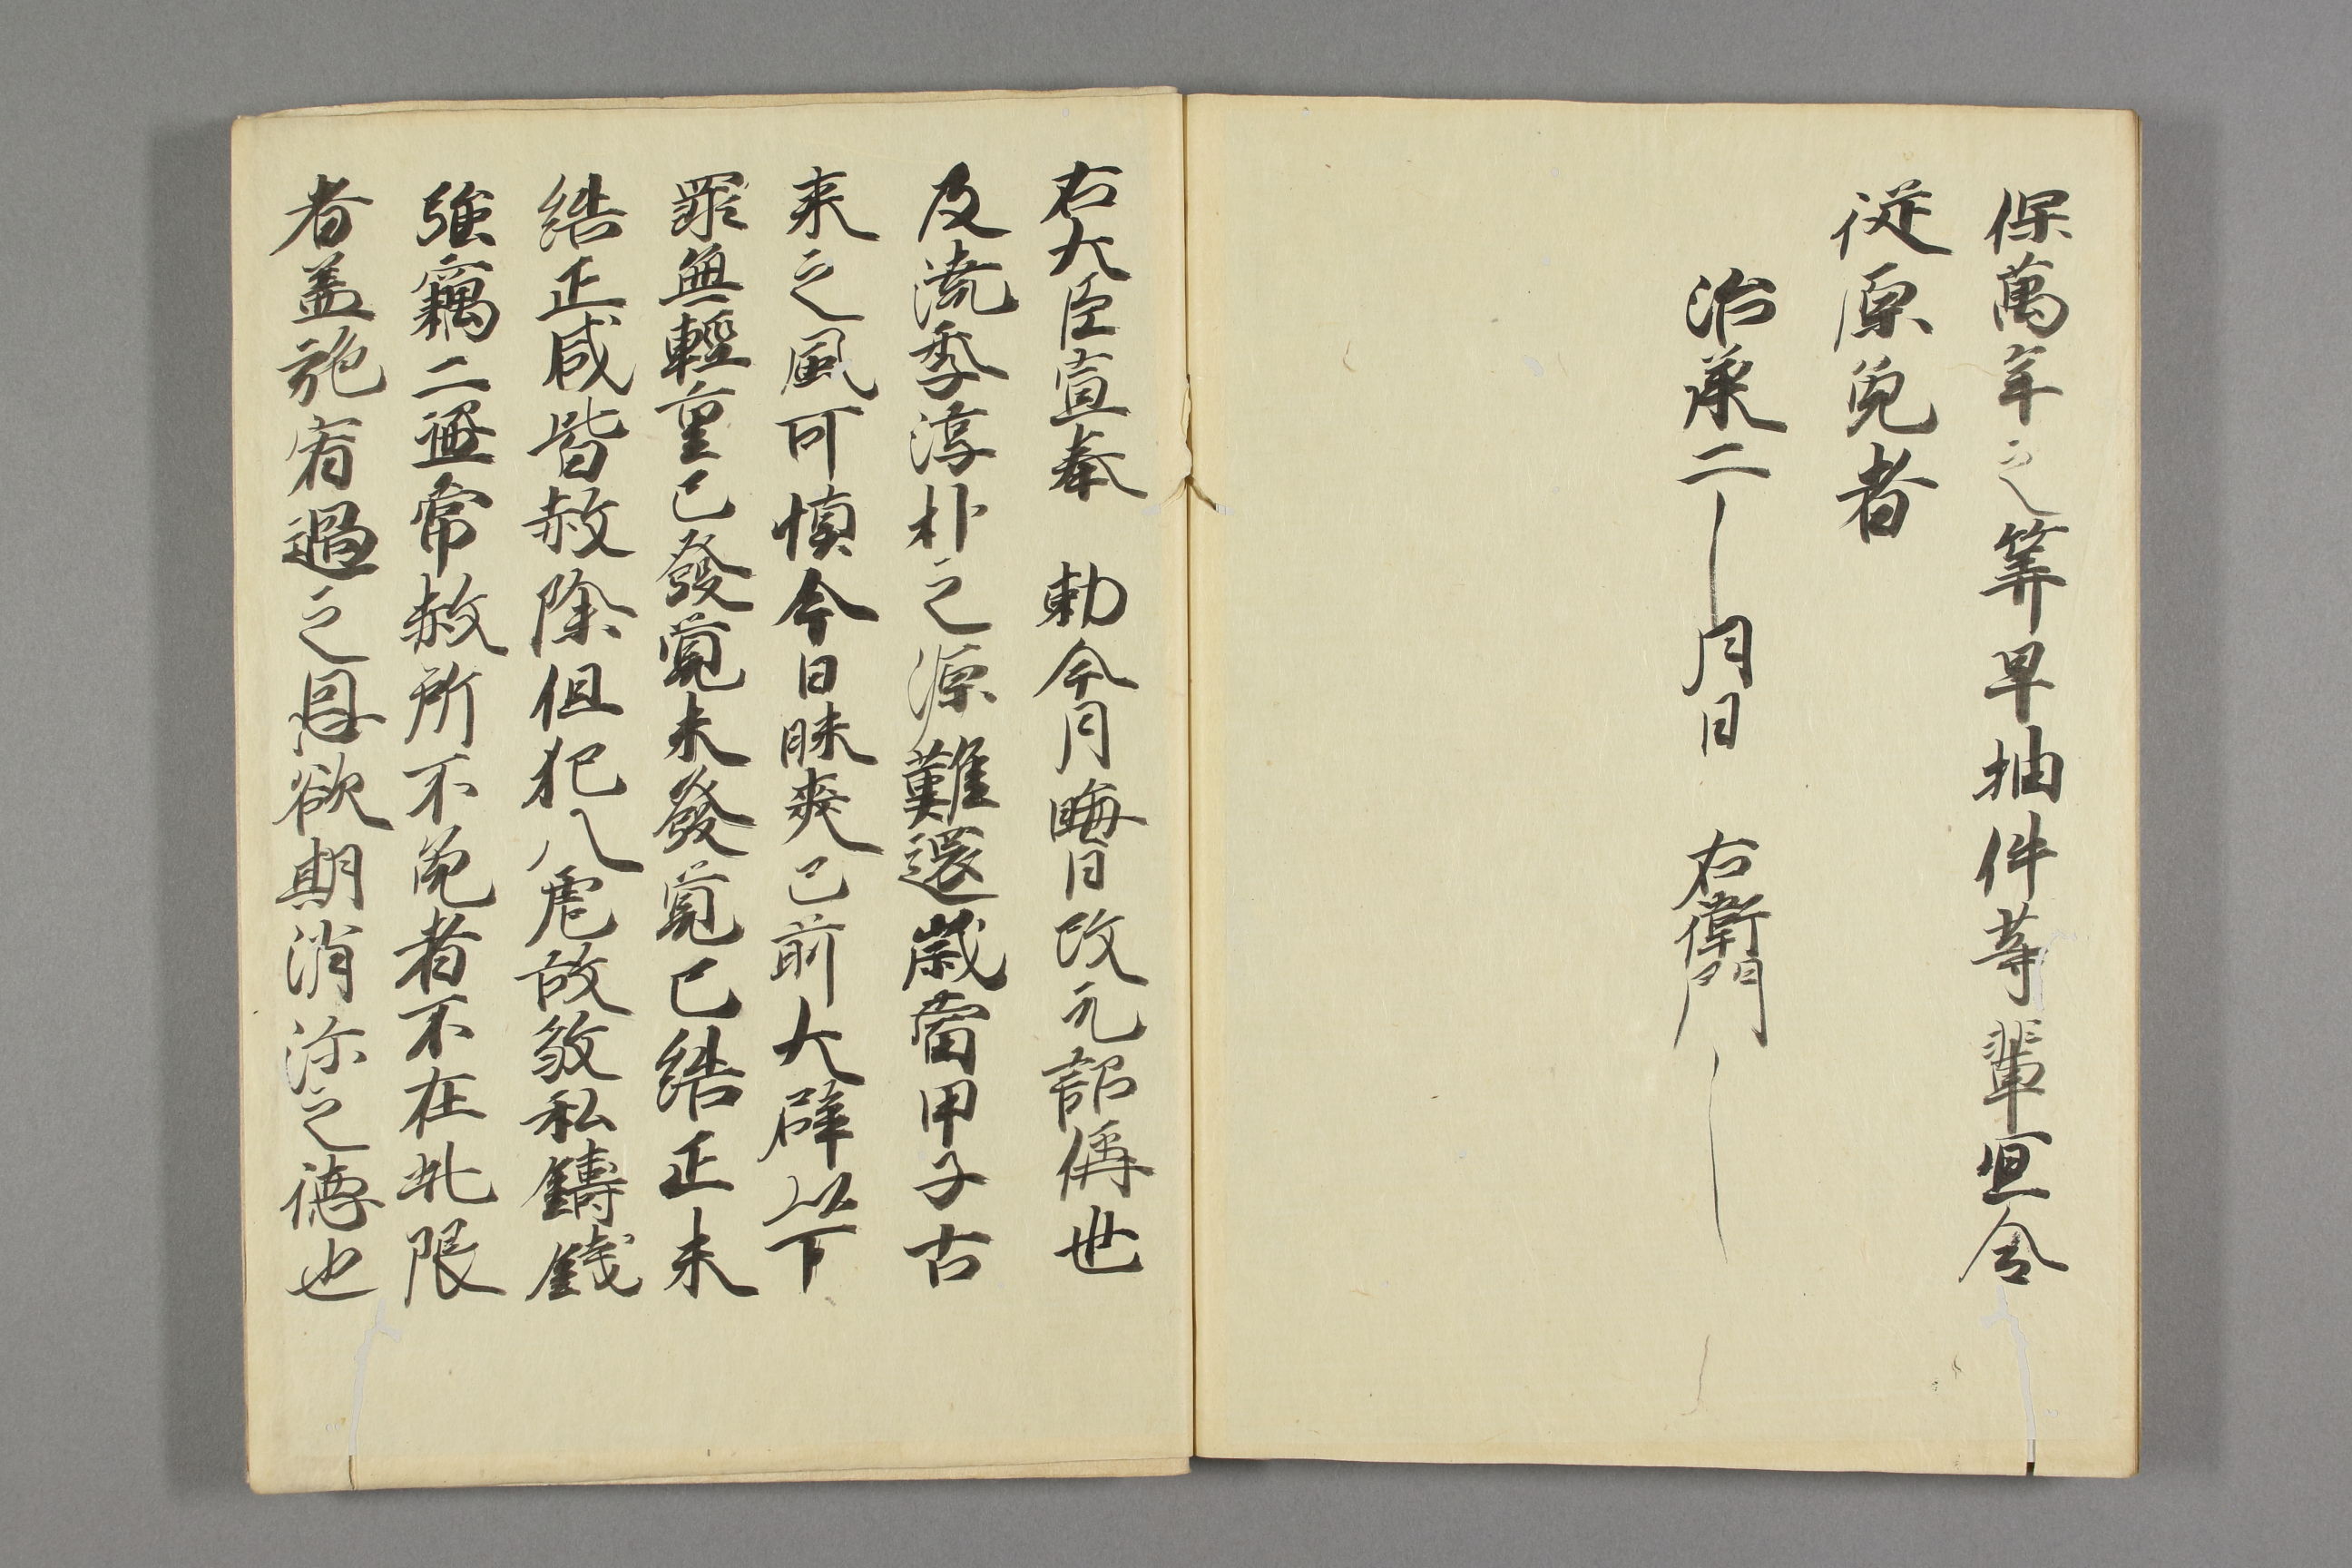 保萬年之筭早抽件等輩冝令
従原免者
治承二―月日　右衛門―
右大臣宣奉　勅今月晦日改元詔偁世
及澆季淳朴之源難還歳當甲子古
来之風可慎今日昧爽已前大辟以下
罪無輕重已發覺未發覺已結正未
結正咸皆赦除但犯八虐故敓私鑄錢
強竊二盗常赦所不免者不在此限
者盖施宥過之恩欲期消沴之德也